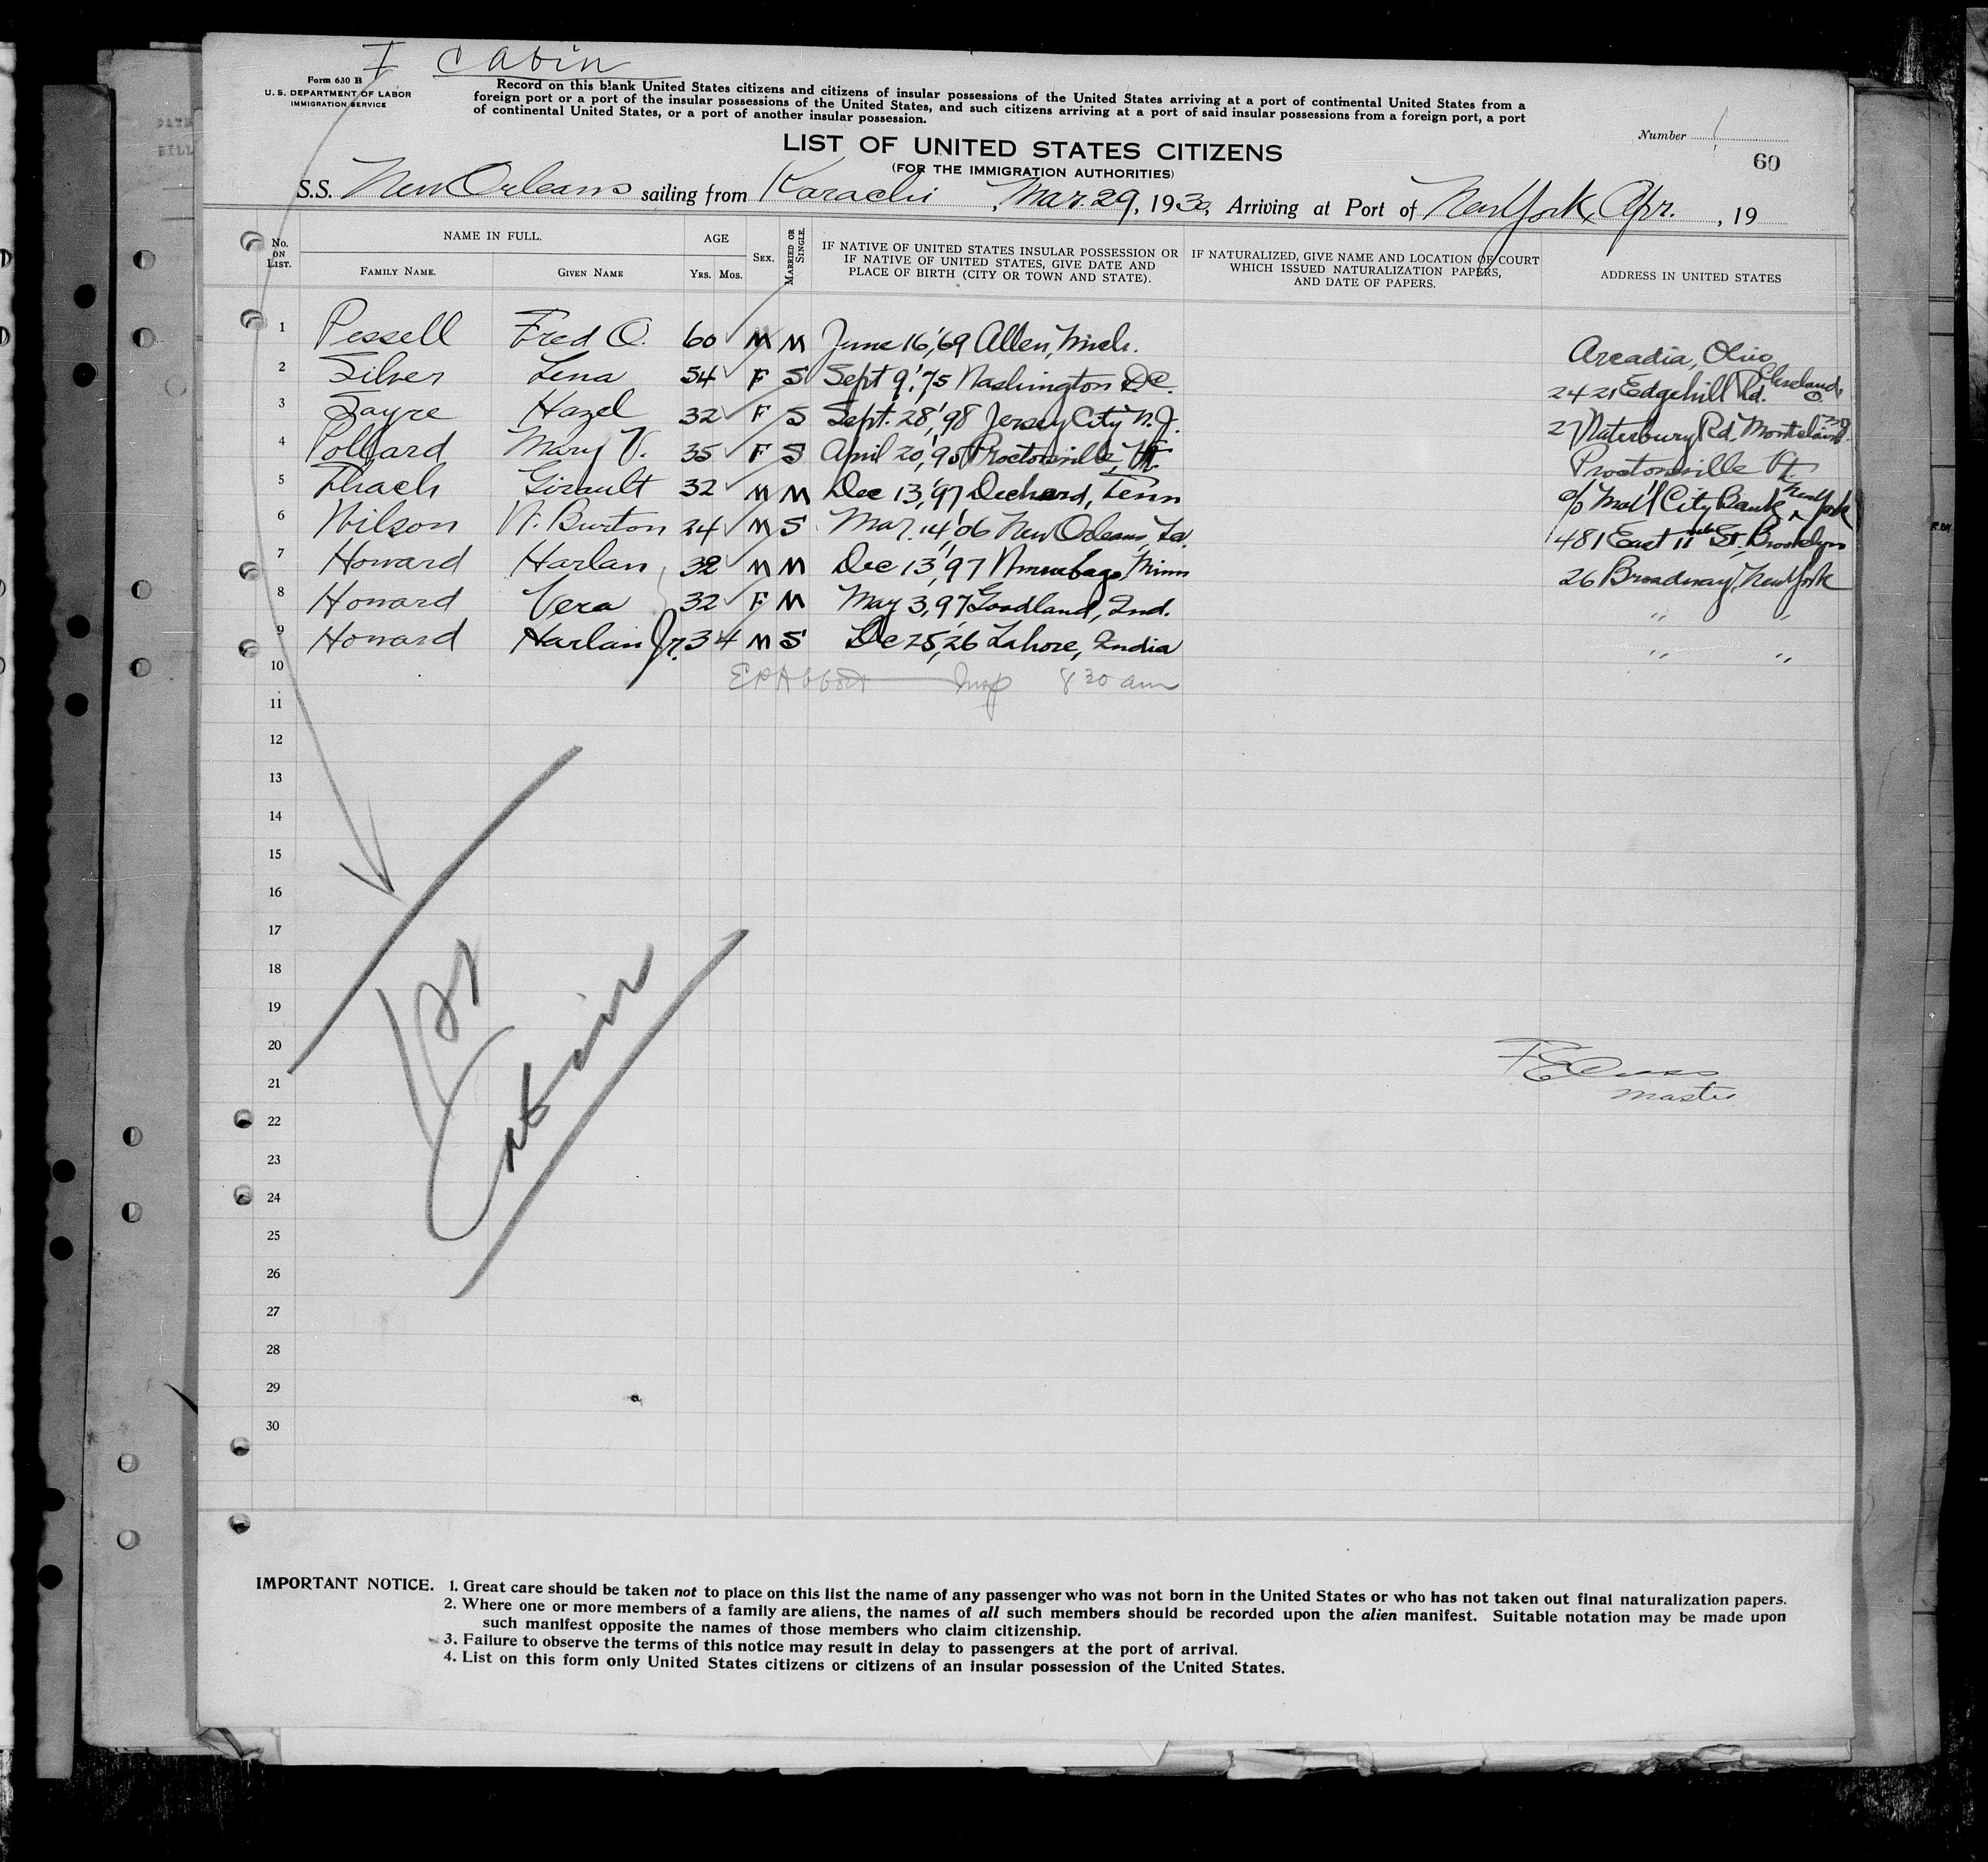 I Cabin
Form 630 B
U. S. DEPARTMENT OF LABOR
IMMIGRATION SERVICE
Record on this blank United States citizens and citizens of insular possessions of the United States arriving at a port of continental United States from a
foreign port or a port of the insular possessions of the United States, and such citizens arriving at a port of said insular possessions from a foreign port, a port
of continental United States, or a port of another insular possession.
Number 1
60
LIST OF UNITED STATES CITIZENS
(FOR THE IMMIGRATION AUTHORITIES)
S.S. New Orleans sailing from Karachi, Mar. 29, 1930, Arriving at Port of New York, Apr., 19
No. ON LIST. NAME IN FULL. AGE SEX. MARRIED OR SINGLE. IF NATIVE OF UNITED STATES INSULAR POSSESSION OR IF NATIVE OF UNITED STATES, GIVE DATE AND PLACE OF BIRTH (CITY OR TOWN AND STATE). IF NATURALIZED, GIVE NAME AND LOCATION OF COURT WHICH ISSUED NATURALIZATION PAPERS, AND DATE OF PAPERS. ADDRESS IN UNITED STATES
FAMILY NAME. GIVEN NAME YRS. MOS.
1 Pessell Fred O. 60 M M June 16, '69 Allen, Mich. Arcadia, Ohio
2 Silver Lena 54 F S Sept 9, '75 Washington DC. 2421 Edgehill Rd. Cleveland, O
3 Sayre Hazel 32 F S Sept. 28, '98 Jersey City N.J. 27 Waterbury Rd. Montclair NJ
4 Pollard Mary V. 35 F S April 20, '95 Proctorsville, Vt. Proctorsville Vt.
5 Thach Girault 32 M M Dec 13, '97 Decherd, Tenn c/o Nat'l City Bank, New York
6 Wilson W. Burton 24 M S Mar. 14, '06 New Orleans, La. 1481 East 11th St. Brooklyn
7 Howard Harlan 32 M M Dec 13, '97 Winnebago, Minn 26 Broadway, New York
8 Howard Vera 32 F M May 3, 97 Goodland, Ind. " "
9 Howard Harlan Jr. 3 4 M S Dec 25, '26 Lahore, India " "
10 E P Abbott Insp 8 30 am
11
12
13
14
15
16
17
18
19
20
21
22
23
24
25
26
27
28
29
30
1st
Cabin
Master
IMPORTANT NOTICE. 1. Great care should be taken not to place on this list the name of any passenger who was not born in the United States or who has not taken out final naturalization papers.
2. Where one or more members of a family are aliens, the names of all such members should be recorded upon the alien manifest. Suitable notation may be made upon
such manifest opposite the names of those members who claim citizenship.
3. Failure to observe the terms of this notice may result in delay to passengers at the port of arrival.
4. List on this form only United States citizens or citizens of an insular possession of the United States.